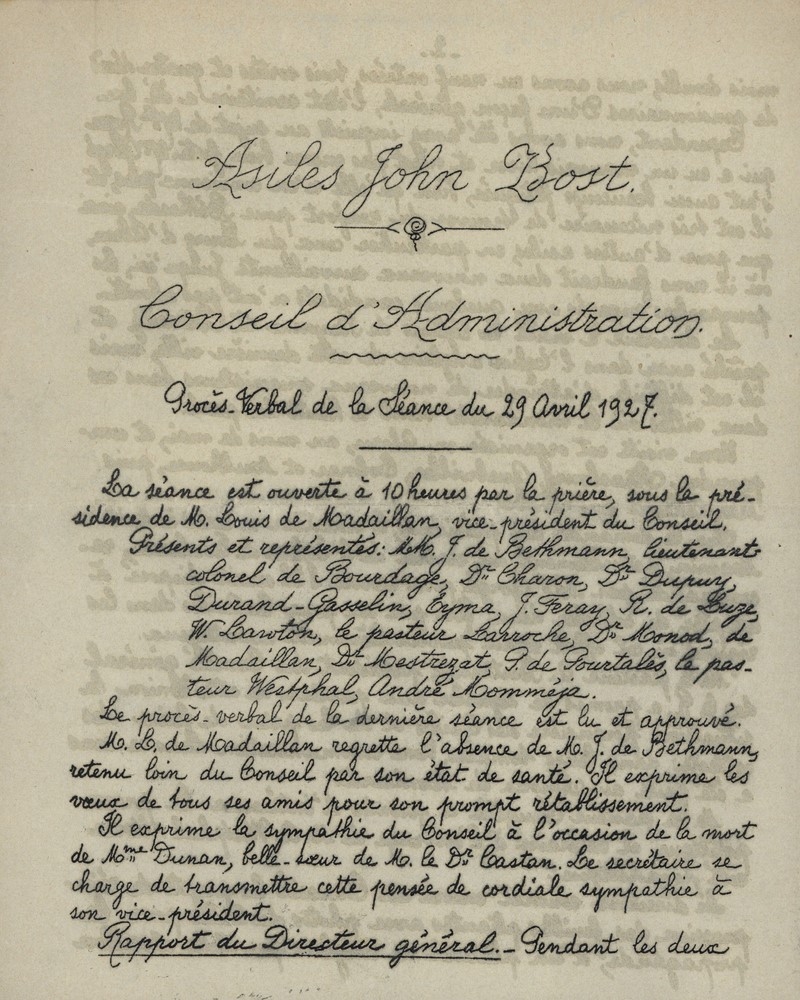 Asiles John Bost.
Conseil d'Administration.
Procès-Verbal de la Séance du 29 Avril 1927.
La séance est ouverte à 10 heures par la prière, sous la pré-
sidence de M. Louis de Madaillan, vice-président du Conseil.
Présents et représentés: MM. J. de Bethmann, lieutenant-
colonel de Bourdage, Dr Charon, Dr Dupuy,
Durand-Gasselin, Eyma, J. Feray, R. de Luze,
W. Lawton, le pasteur Larroche, Dr Monod, de
Madaillan, Dr Mestrezat, P. de Pourtalès, le pas-
teur Westphal, André Momméja.
Le procès-verbal de la dernière séance est lu et approuvé.
M. L. de Madaillan regrette l'absence de M. J. de Bethmann,
retenu loin du Conseil par son état de santé. Il exprime les
vœux de tous ses amis pour son prompt rétablissement.
Il exprime la sympathie du Conseil à l'occasion de la mort
de Mme Dunan, belle-sœur de M. le Dr Castan. Le secrétaire se
charge de transmettre cette pensée de cordiale sympathie à
son vice-président.
Rapport du Directeur général.- Pendant les deux